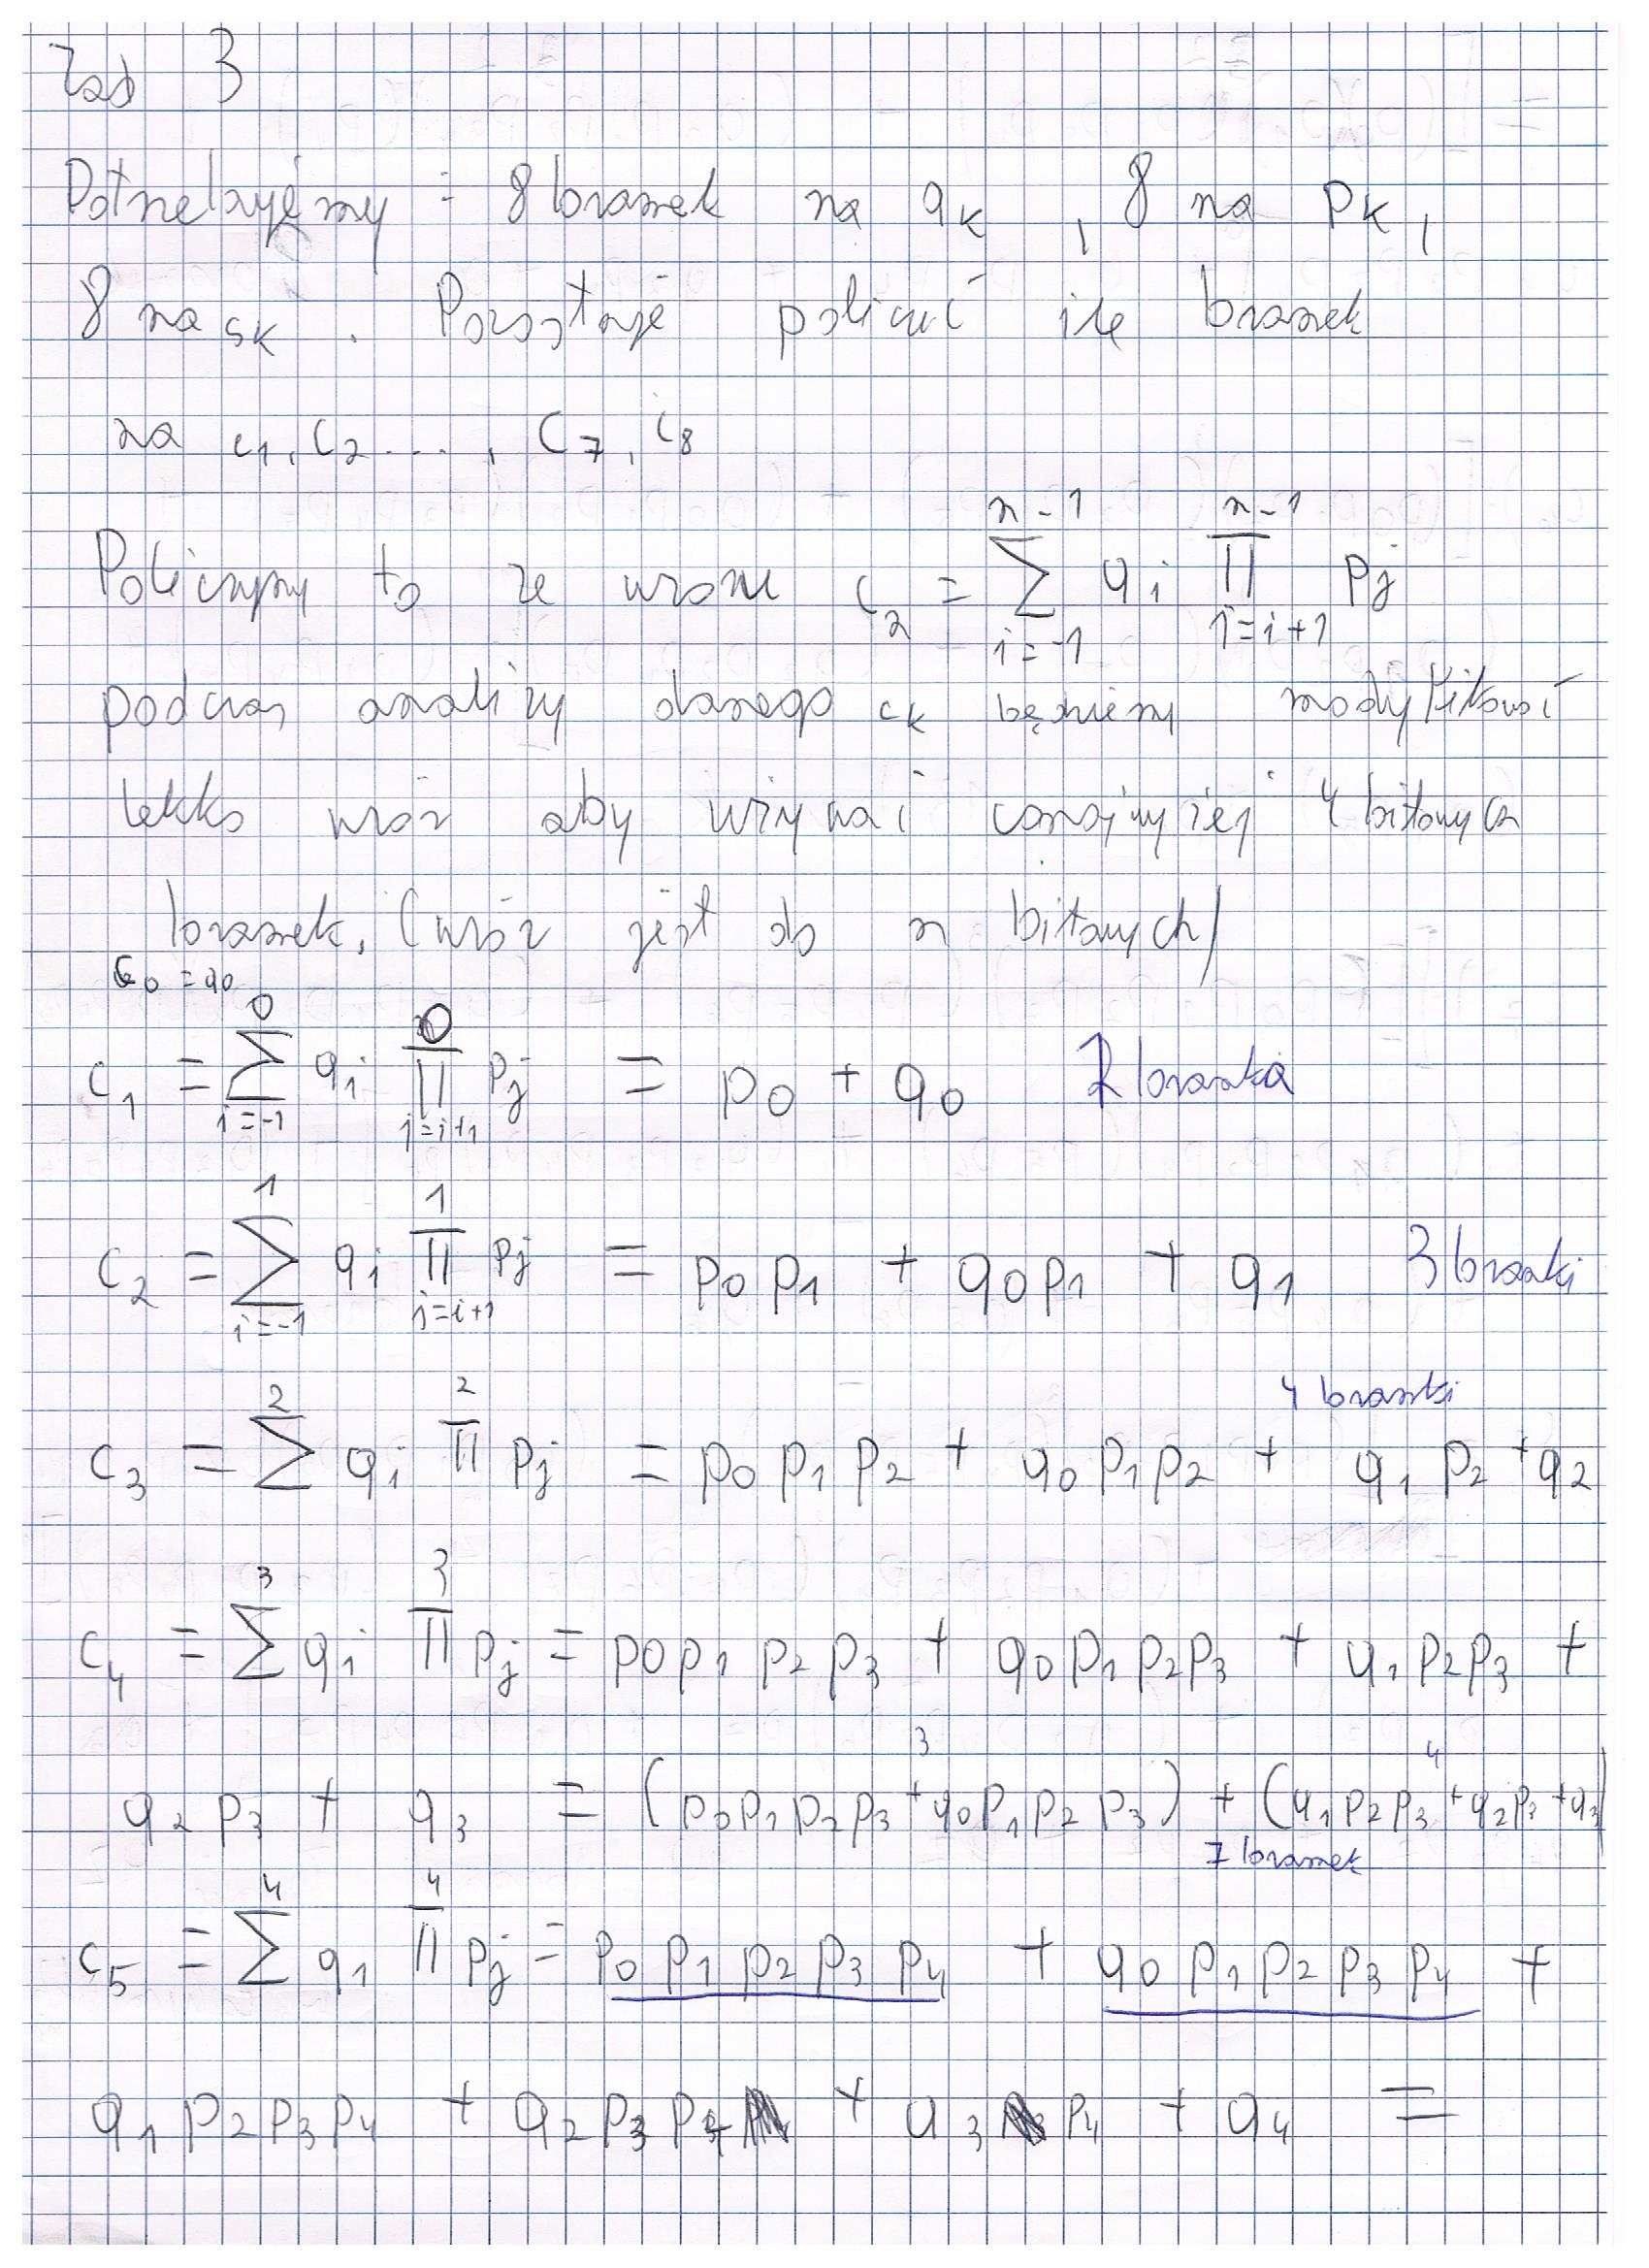 Zad 3
Potrzebujemy : 8 bramek na q_K , 8 na p_K ,
8 na s_K . Pozostaje policzyć ile bramek
na c_1, c_2 ..., c_7, c_8
Policzmy to ze wzoru c_2 = \sum_{i=-1}^{n-1} q_i \prod_{j=i+1}^{n-1} p_j
podczas analizy danego c_K będziemy modyfikować
lekko wzór aby używać conajwyżej 4 bitowych
bramek. (wzór jest do n bitowych)
c_0 = q_0
c_1 = \sum_{i=-1}^{0} q_i \prod_{j=i+1}^{0} p_j = p_0 + q_0 1 bramka
c_2 = \sum_{i=-1}^{1} q_i \prod_{j=i+1}^{1} p_j = p_0 p_1 + q_0 p_1 + q_1 3 bramki
4 bramki
c_3 = \sum^{2} q_i \prod^{2} p_j = p_0 p_1 p_2 + q_0 p_1 p_2 + q_1 p_2 + q_2
c_4 = \sum^{3} q_i \prod^{3} p_j = p_0 p_1 p_2 p_3 + q_0 p_1 p_2 p_3 + q_1 p_2 p_3 +
3 4
q_2 p_3 + q_3 = (p_0 p_1 p_2 p_3 + q_0 p_1 p_2 p_3) + (q_1 p_2 p_3 + q_2 p_3 + q_3)
7 bramek
c_5 = \sum^{4} q_i \prod^{4} p_j = p_0 p_1 p_2 p_3 p_4 + q_0 p_1 p_2 p_3 p_4 +
q_1 p_2 p_3 p_4 + q_2 p_3 p_4 + q_3 p_4 + q_4 =